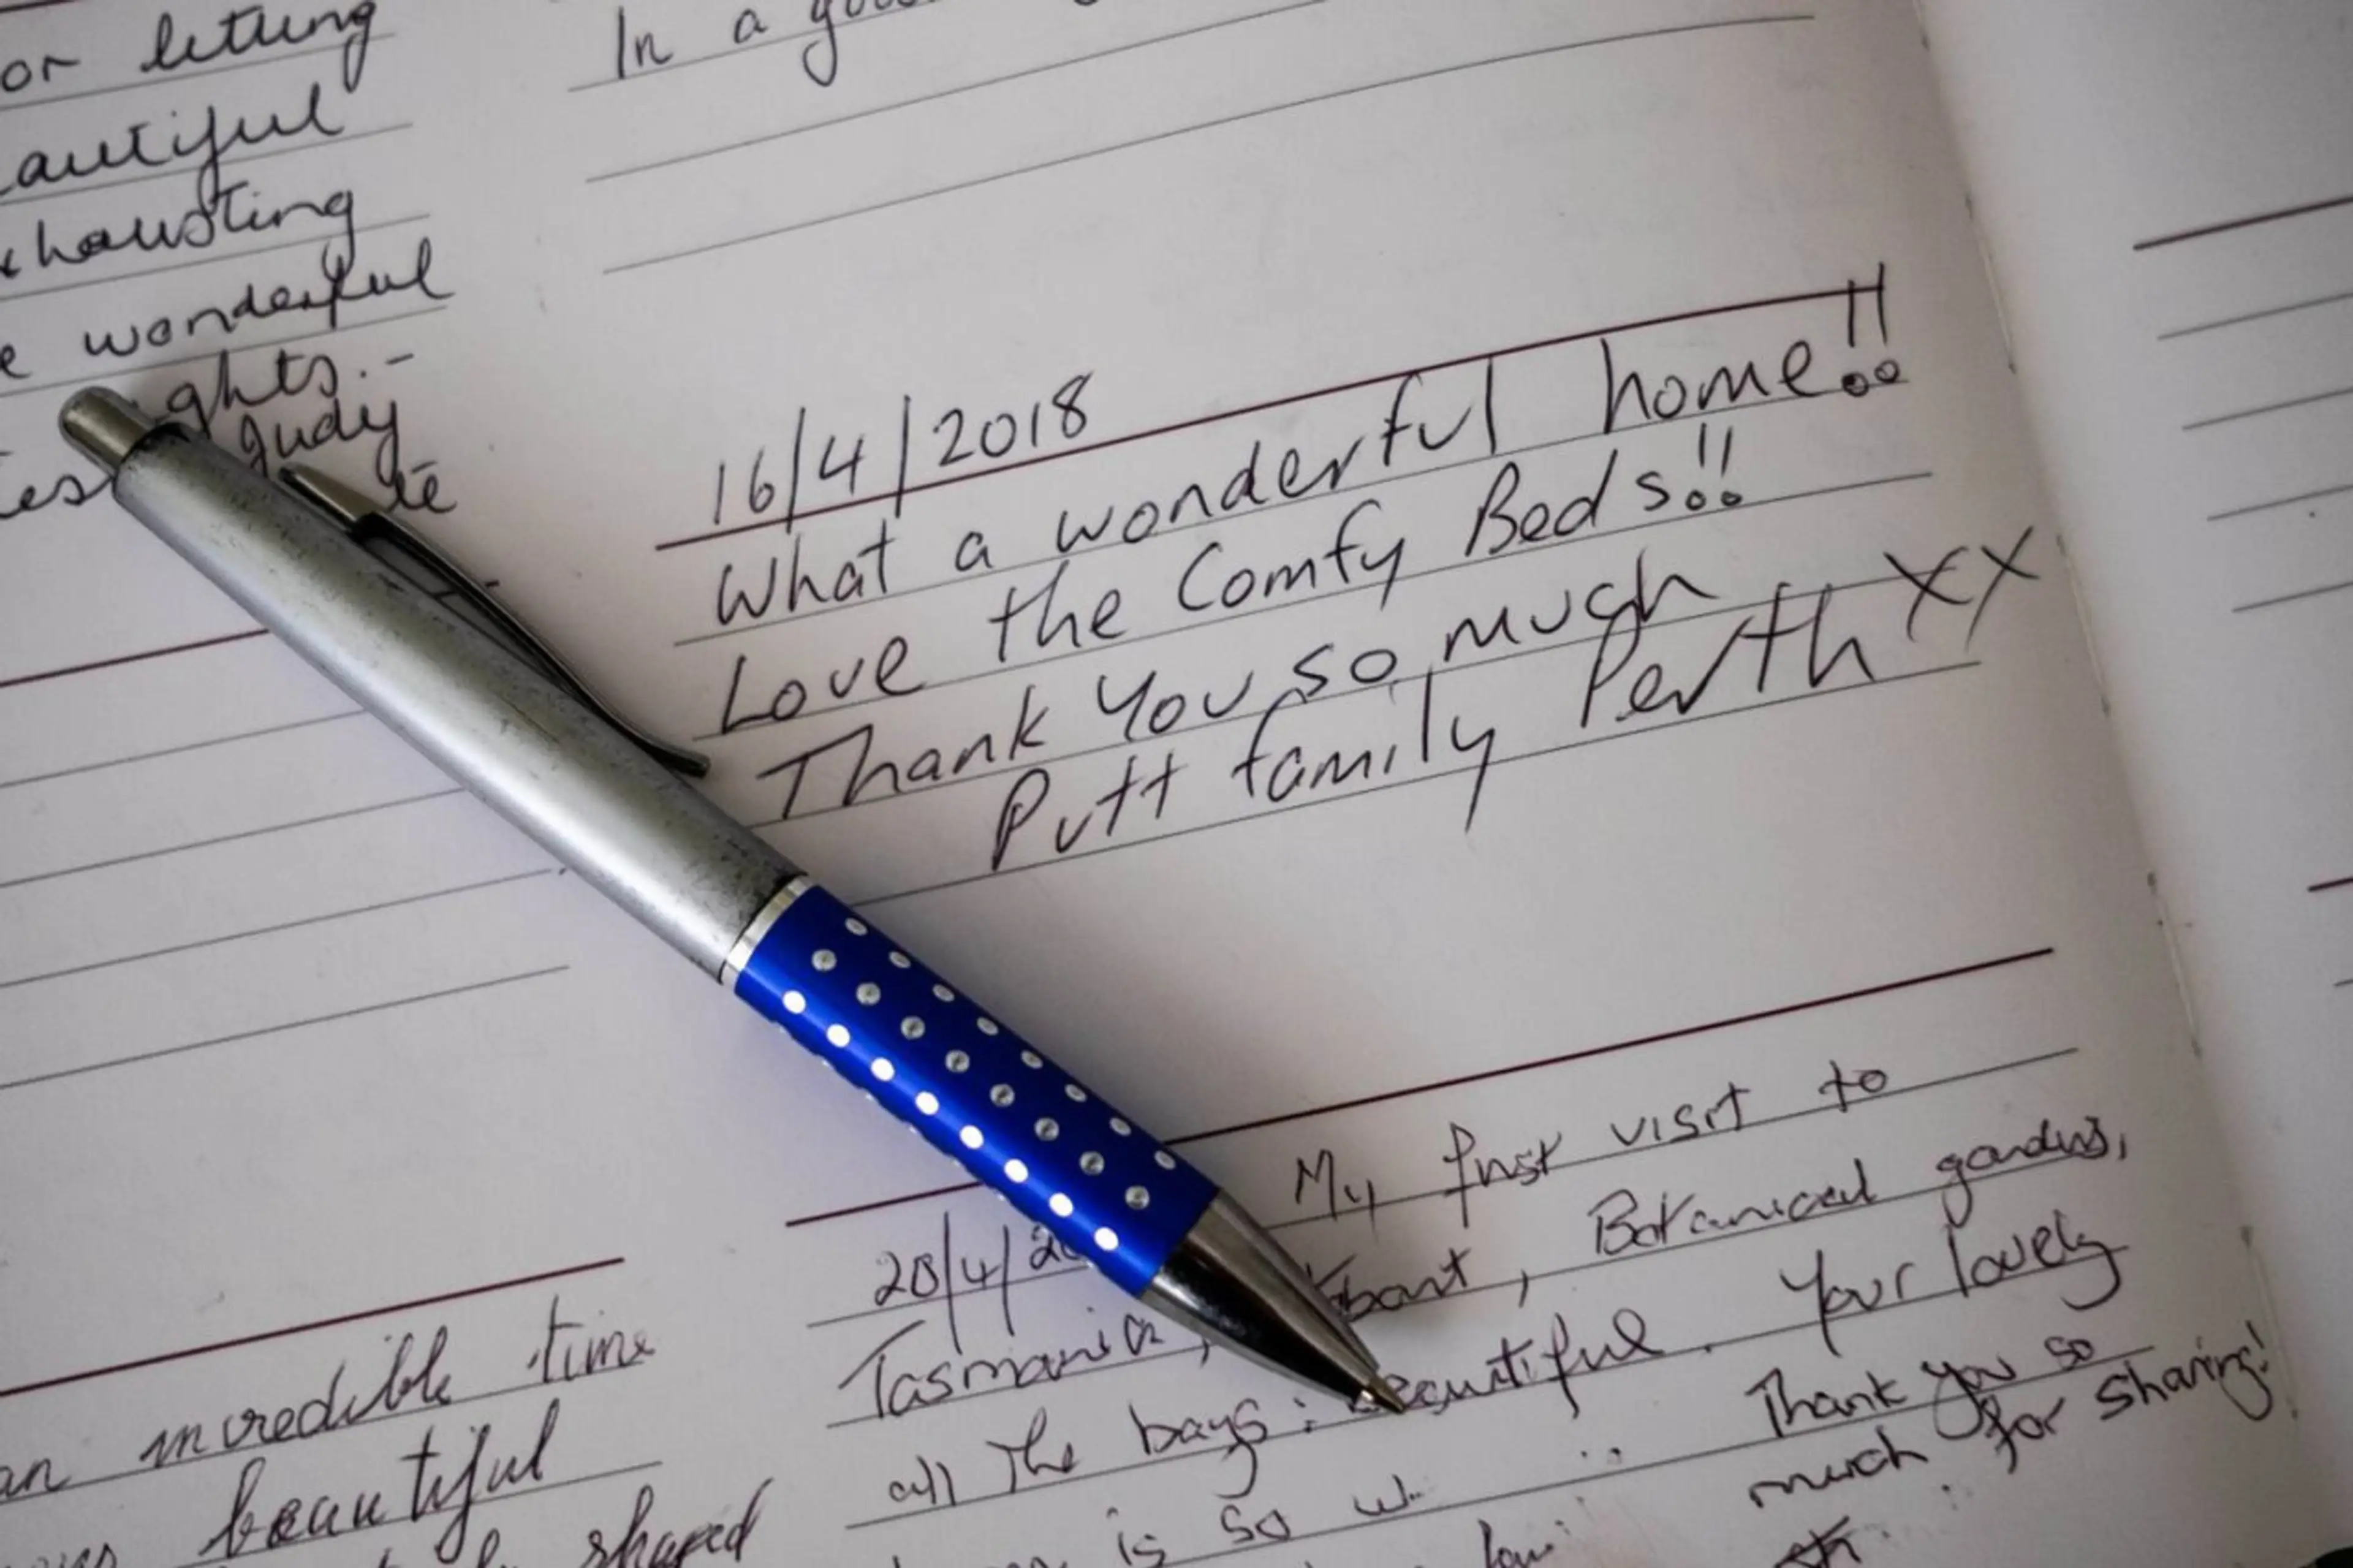 or letting
autiful
hausting
e wonderful
ghts.-
Judy
te
In a
16/4/2018
What a wonderful home!!
Love the Comfy Beds!!
Thank You so much
Putt family Perth XX
My first visit to
20/4/20
Tasmania, Botanical gardens,
all the bays: beautiful. Your lovely
is so
Thank you so
much for sharing!
an incredible time
beautiful
shared